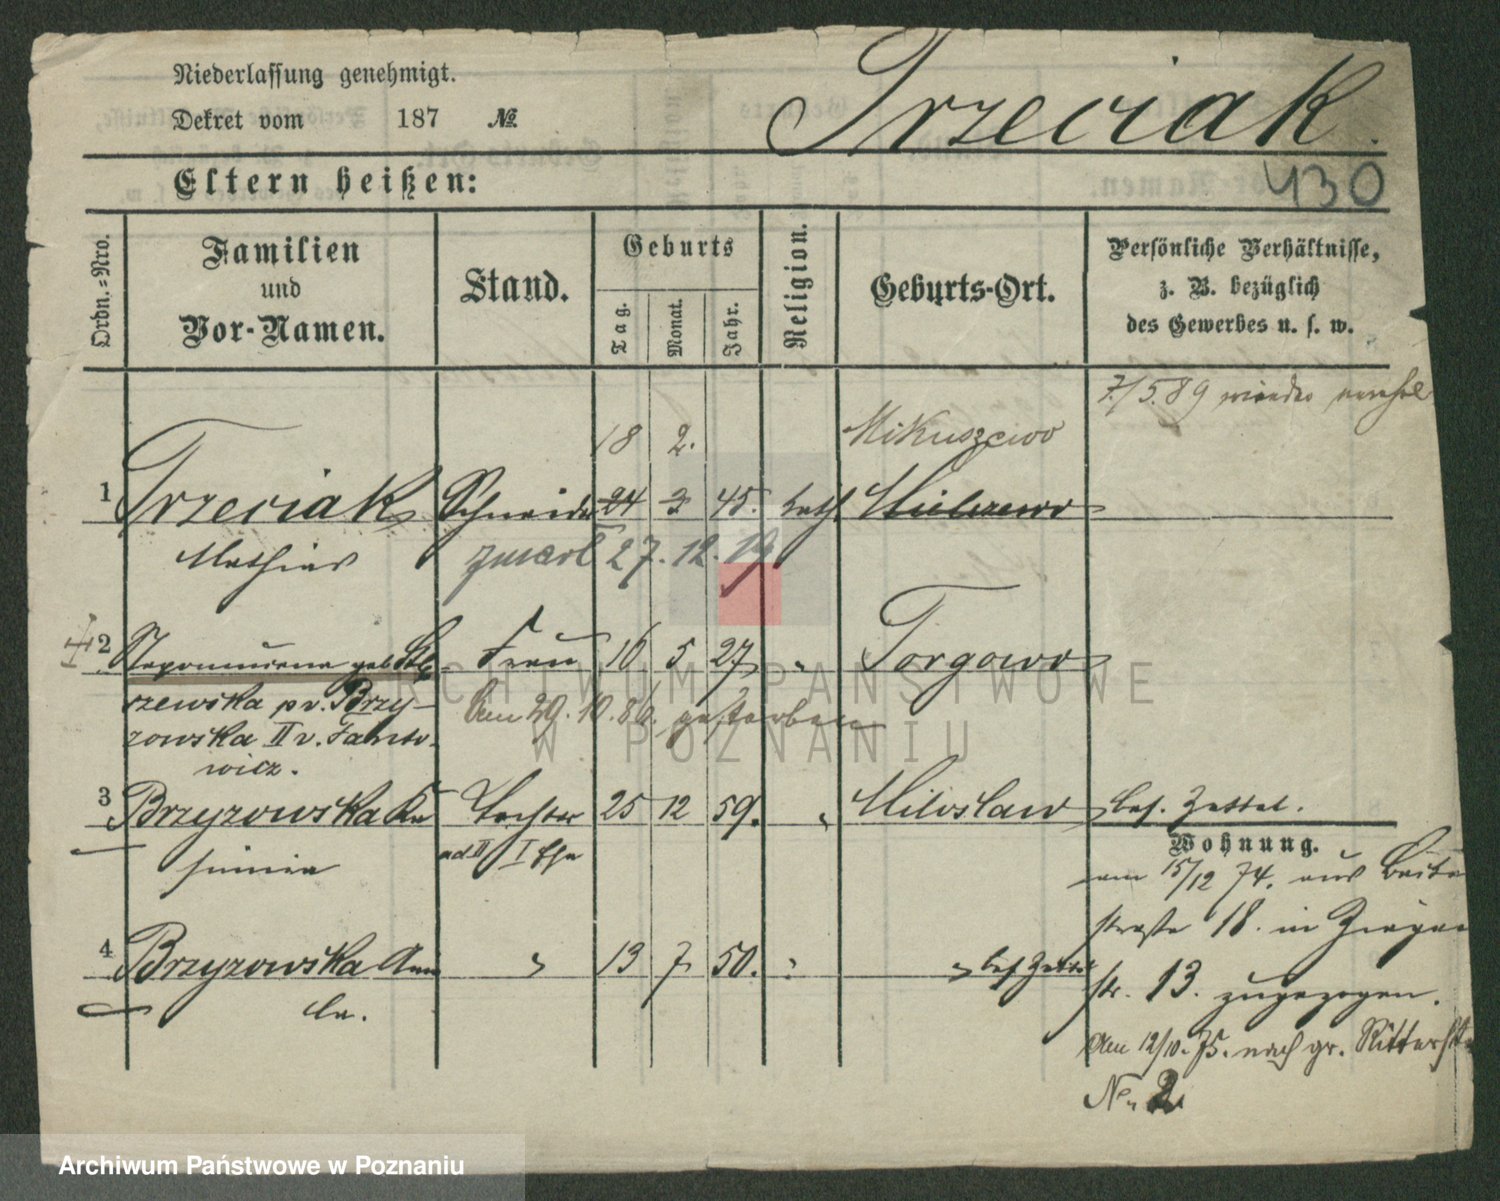 Niederlassung genehmigt.
Dekret vom 187 №
Trzeciak.
430
Eltern heißen:
Ordn.=Nro.
Familien
und
Vor-Namen.
Stand.
Geburts
Tag.
Monat.
Jahr.
Religion.
Geburts-Ort.
Persönliche Verhältnisse,
z. B. bezüglich
des Gewerbes u. s. w.
7./5.89 wieder
18 2. Mikuszewo
1 Trzeciak Schneider 24 3 45. kath.
Mathias zmarł 27.12.19
2 Nepomucena geb. Frau 16 5 27 " Torgowo
szewska pv. Brzy-
zowska II v. Janto-
wicz.
Am 29.10.86. gestorben
3 Brzyzowska Eu Tochter 25 12 59. " Miloslaw bes. Zettel.
ad II I Ehe
4 Brzyzowska Ann " 13 7 50. " " bes. Zettel
la.
Wohnung.
am 15/12 74. aus Breite
straße 18. in Ziegen
str. 13. zugezogen.
Am 12/10. 75. nach gr. Ritterstr
N. 2
ARCHIWUM PAŃSTWOWE
W POZNANIU
Archiwum Państwowe w Poznaniu